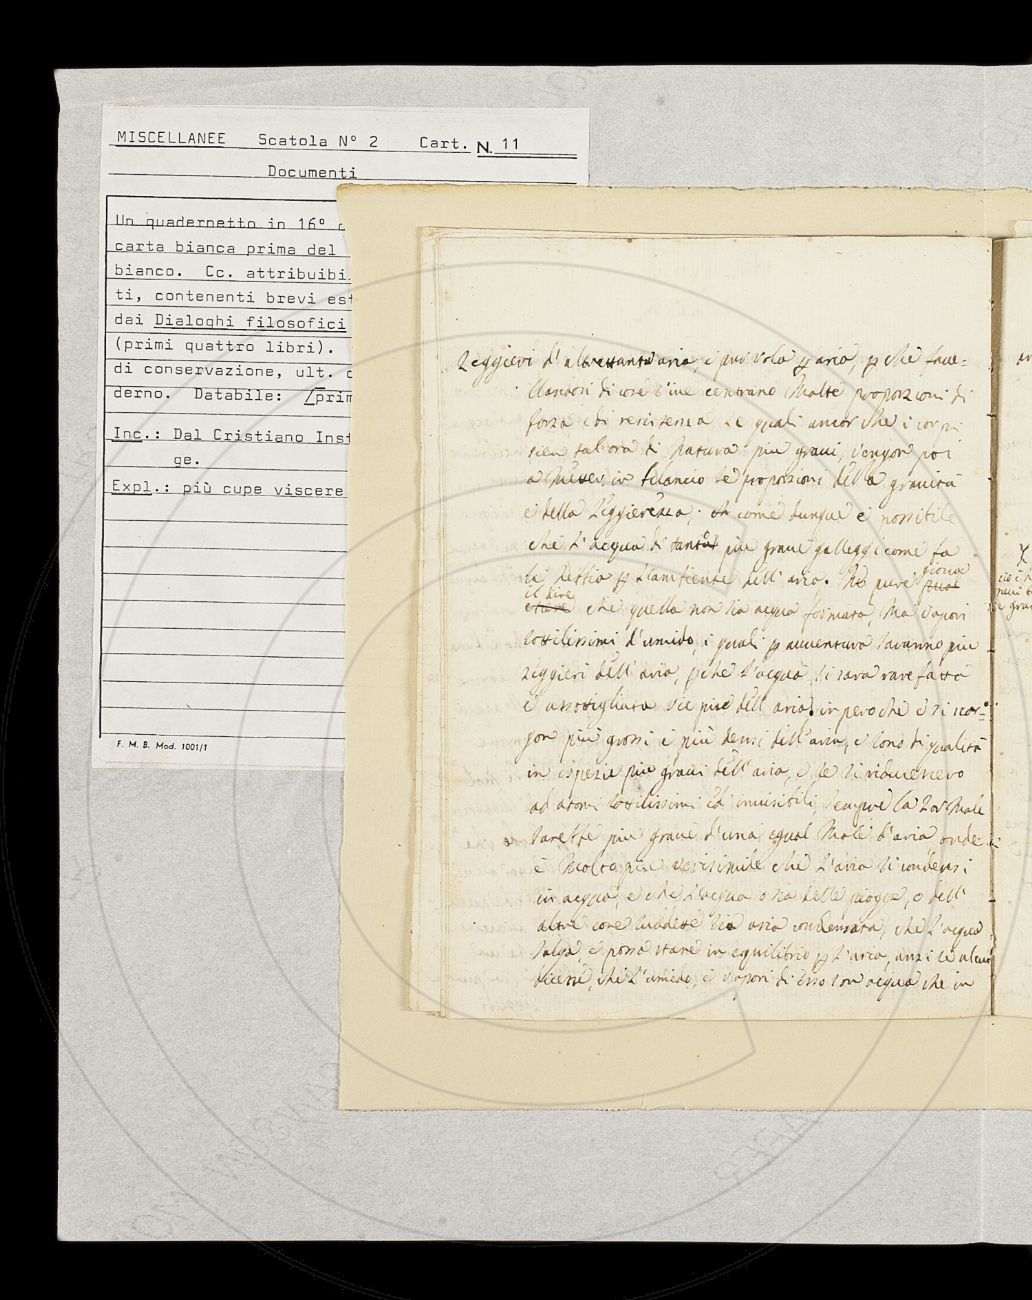 MISCELLANEE Scatola N° 2 Cart. N. 11
Documenti
Un quadernetto in 16°
carta bianca prima del
bianco. Cc. attribuibi
ti, contenenti brevi est
dai Dialoghi filosofici
(primi quattro libri).
di conservazione, ult. c
derno. Databile: /prim
Inc.: Dal Cristiano Inst
ge.
Expl.: più cupe viscere
F. M. B. Mod. 1001/1
Leggieri d'altrettanta aria, e può vola p aria, p che favel-
landosi di cose s'iue centrano Molte proporzioni di
forza e di resistenza le quali ancor che i corpi
sien tal'ora di Natura più graui, vengon poi
a Metter in bilancio le proporzioni della grauità
e della Leggierezza; come dunque è possibile
che l'acqua di tanto più graue galleggi come fa
la Nebbia p l'ambiente dell'aria. Ne pure gioua
il dire che quella non sia acqua formata, Ma vapori
sottilissimi d'umido, i quali p auuentura saranno più
leggieri dell'aria, p che l'acqua si sarà rarefatta
e assottigliata vie più dell'aria, imperoche e' si scor-
gon più grossi e più densi dell'aria, e sono di qualità
in ispezie più graui dell'aria, e se si riducessero
ad atomi sottilissimi ed inuisibili, sempre la lor Mole
sarebbe più graue d'una egual Mole d'aria onde
è Molto più verisimile che l'aria si condensi
in acqua, e che l'acqua o sia delle piogge, o dell'
altre cose suddette sia aria condensata, che l'acqua
salga, e possa stare in equilibrio p l'aria, anzi se alcun
dicesse, che l'umido, e vapori di esso son acqua che in